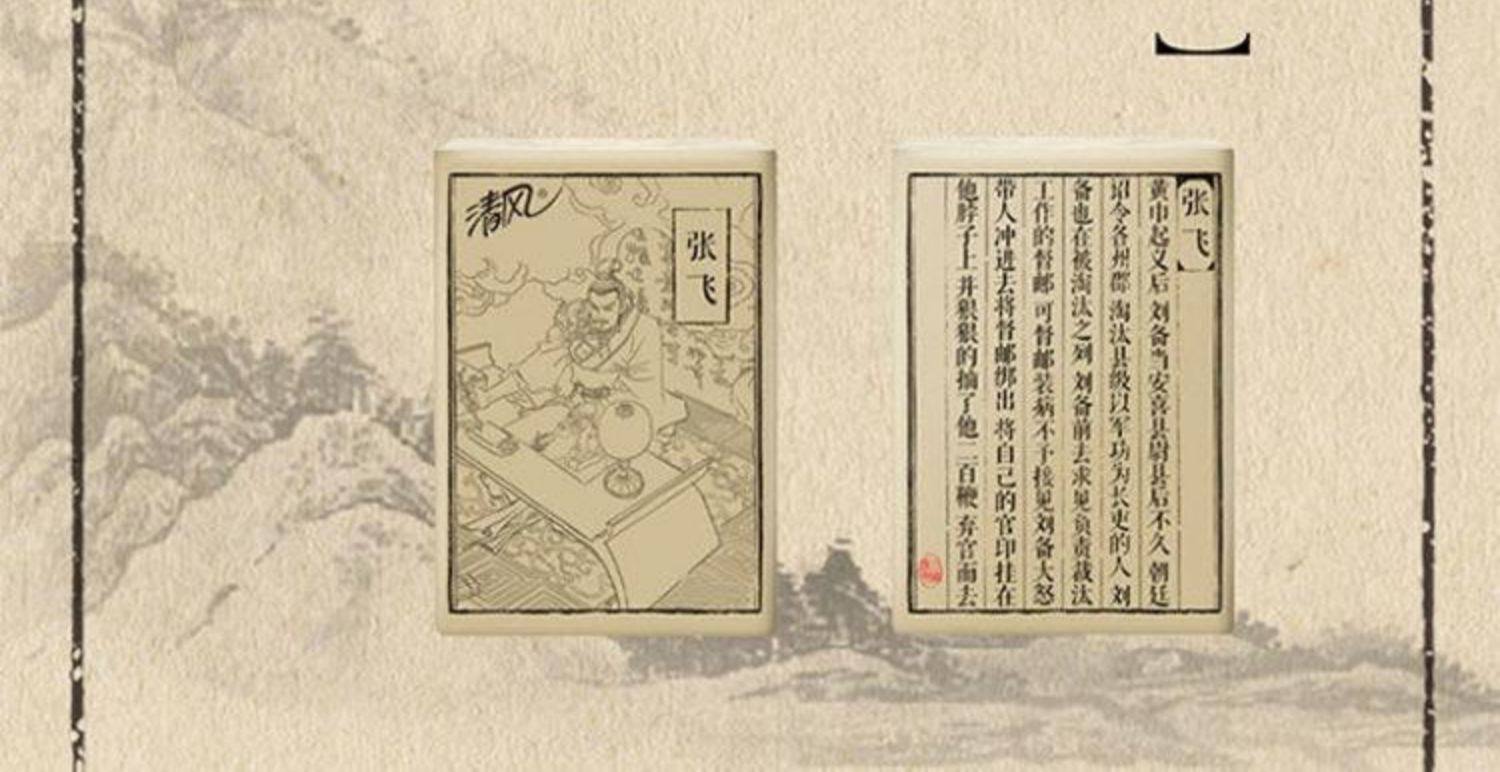 清风
张飞
张飞
黄巾起义后 刘备当安喜县尉县后不久 朝廷
诏令各州郡 淘汰县级以军功为长吏的人 刘
备也在被淘汰之列 刘备前去求见负责裁汰
工作的督邮 可督邮装病不予接见刘备大怒
带人冲进去将督邮绑出 将自己的官印挂在
他脖子上 并狠狠的抽了他二百鞭 弃官而去